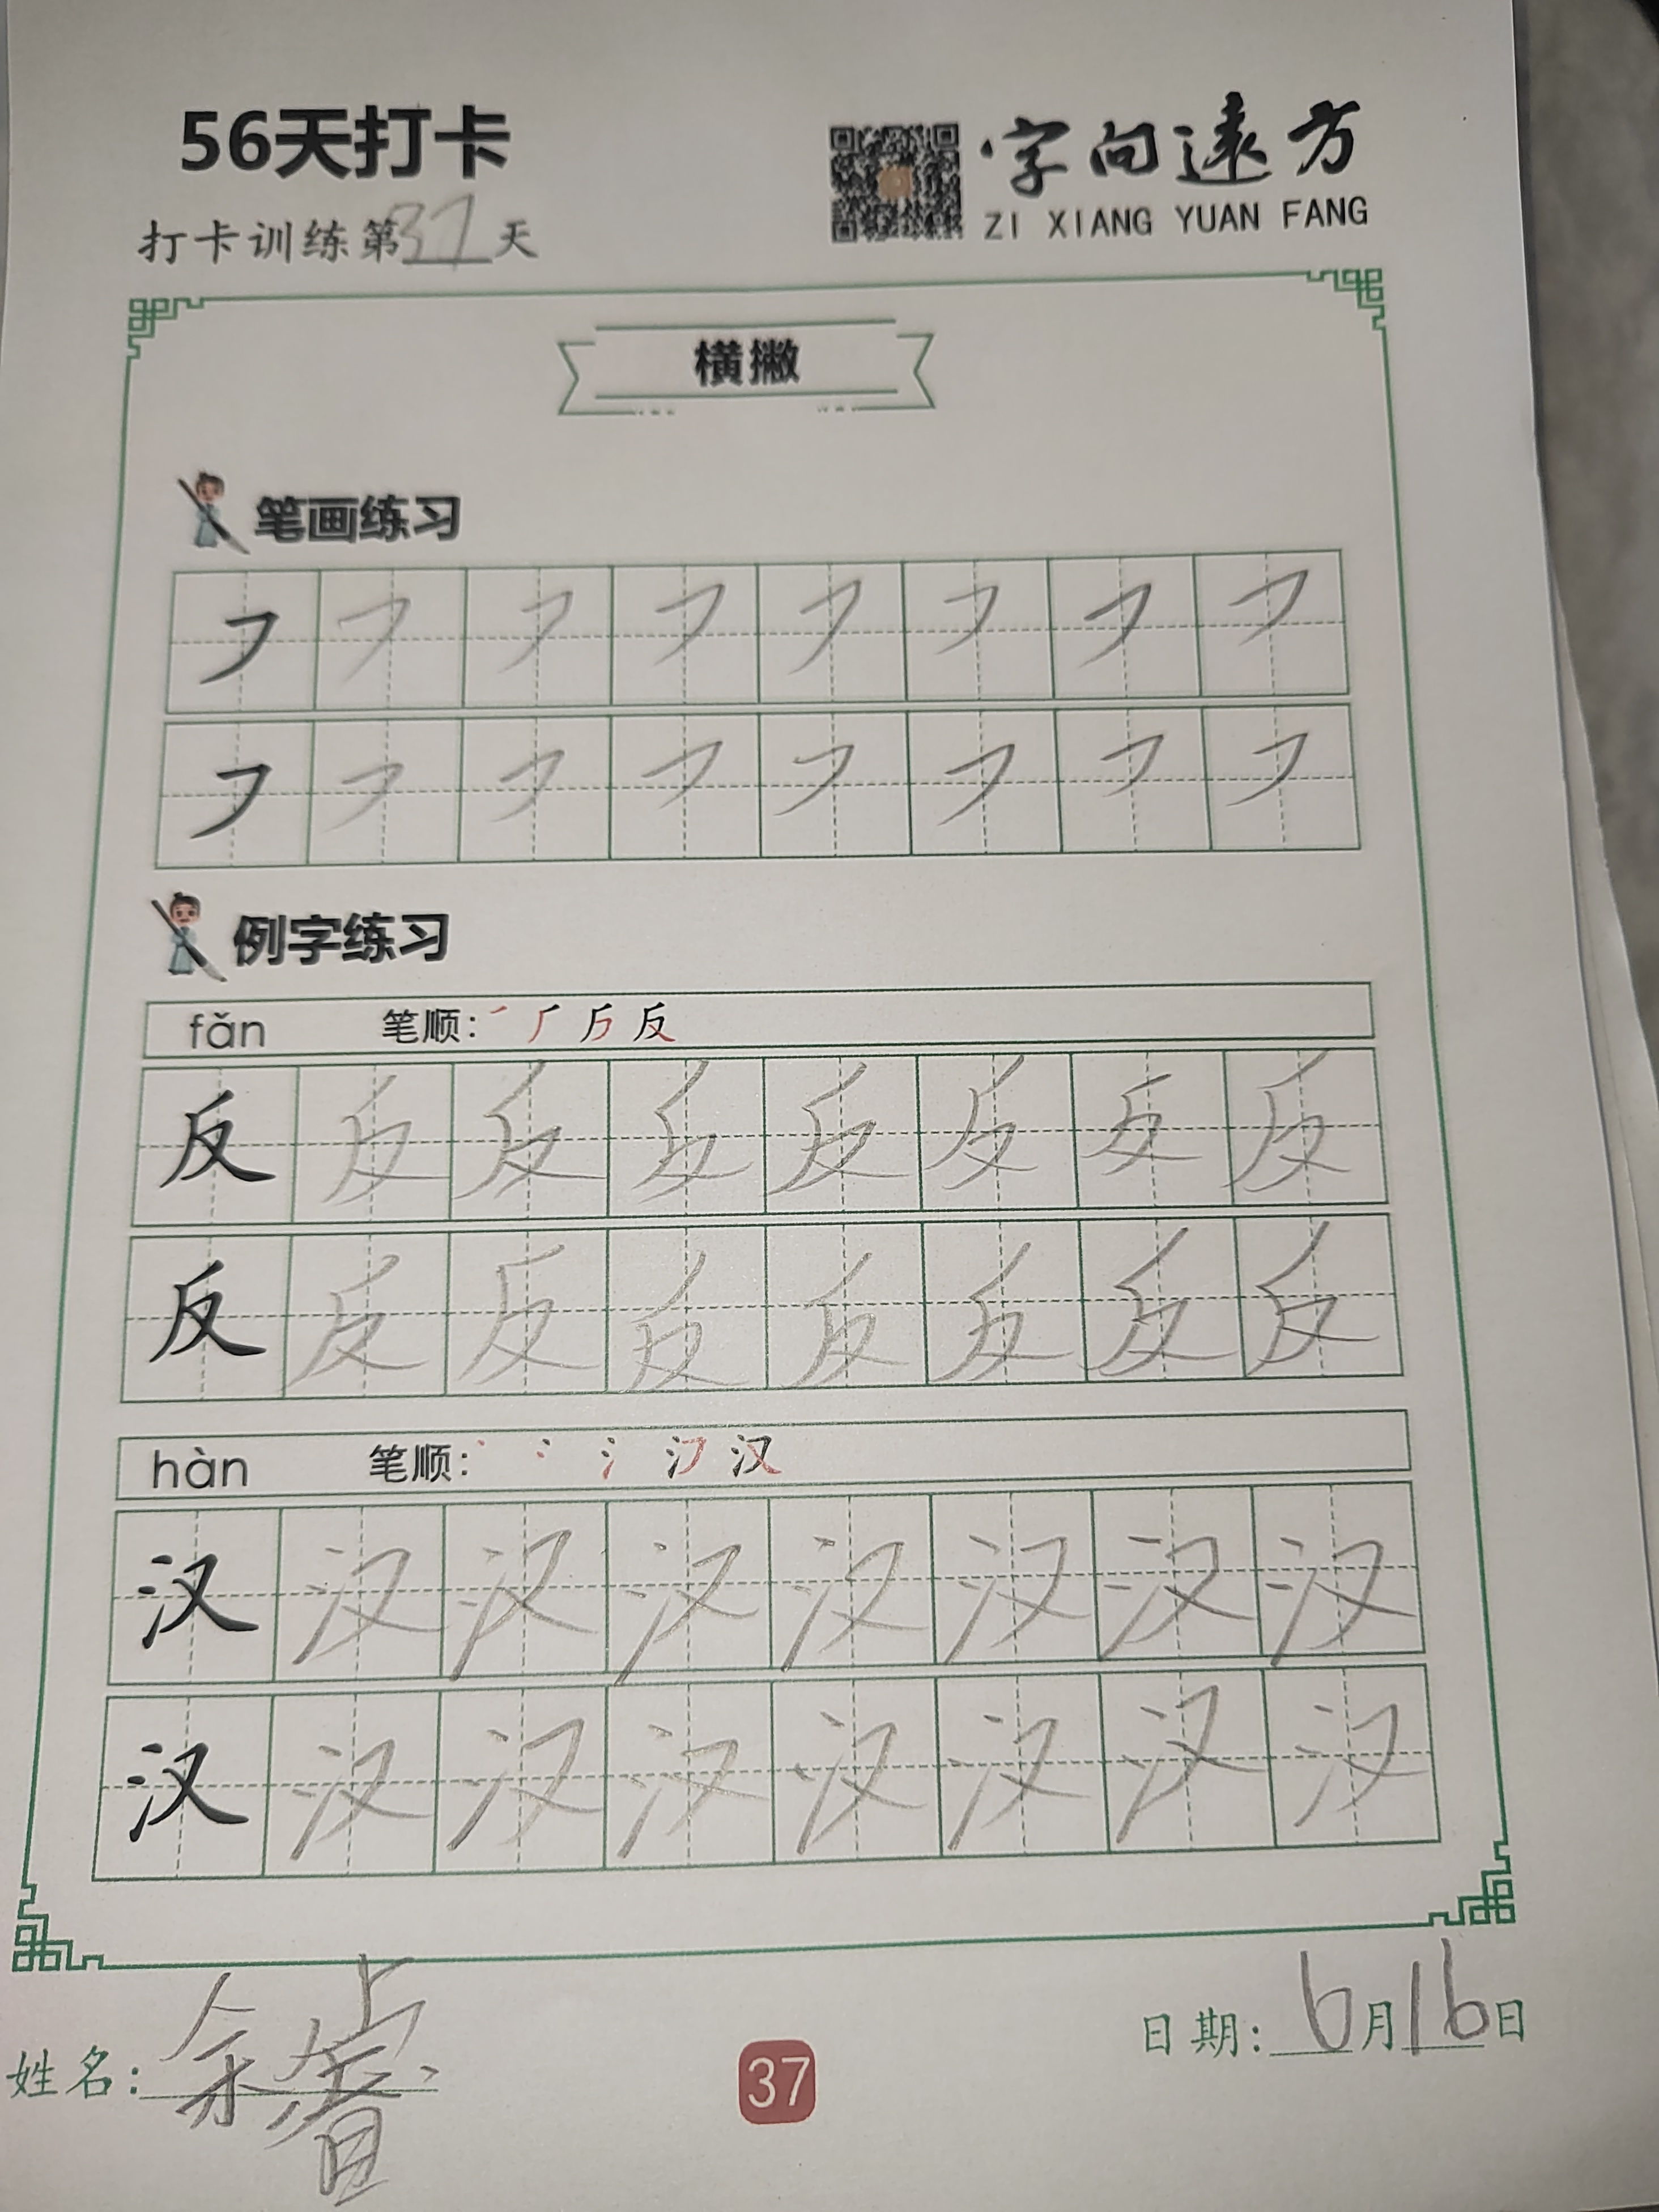 56天打卡
字向远方
ZI XIANG YUAN FANG
打卡训练第37天
横撇
笔画练习
㇇ ㇇ ㇇ ㇇ ㇇ ㇇ ㇇ ㇇
㇇ ㇇ ㇇ ㇇ ㇇ ㇇ ㇇ ㇇
例字练习
fǎn 笔顺: 反
反 反 反 反 反 反 反 反
反 反 反 反 反 反 反 反
hàn 笔顺: 汉
汉 汉 汉 汉 汉 汉 汉 汉
汉 汉 汉 汉 汉 汉 汉 汉
姓名: 余睿
日期: 6月16日
37